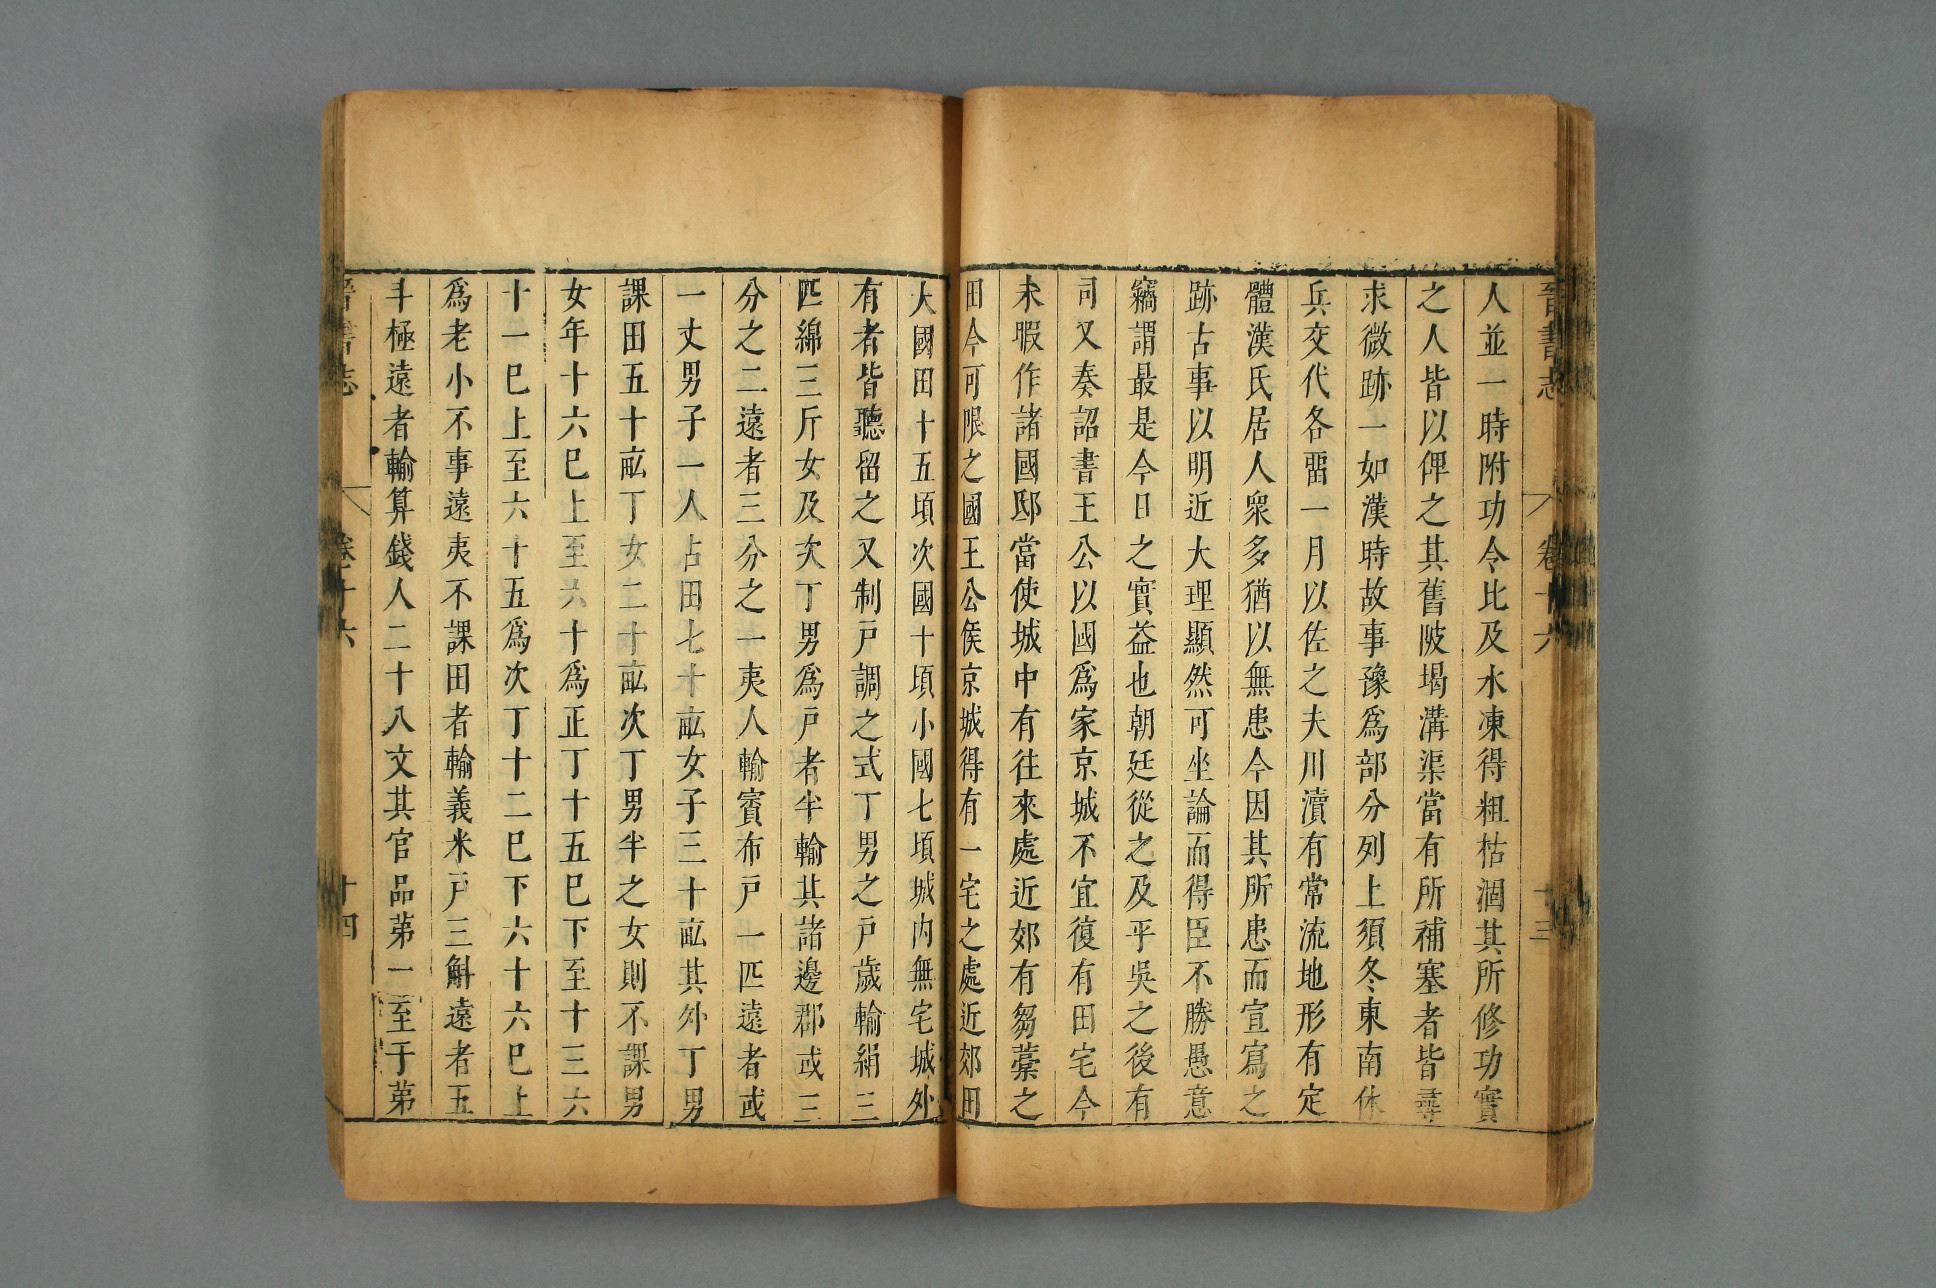 晉書志 卷十六 十三
人並一時附功令比及水凍得粗枯涸其所修功實
之人皆以俾之其舊陂堨溝渠當有所補塞者皆尋
求微跡一如漢時故事豫爲部分列上須冬東南休
兵交代各畱一月以佐之夫川瀆有常流地形有定
體漢氏居人衆多猶以無患今因其所患而宣寫之
跡古事以明近大理顯然可坐論而得臣不勝愚意
竊謂最是今日之實益也朝廷從之及平吳之後有
司又奏詔書王公以國爲家京城不宜復有田宅今
未暇作諸國邸當使城中有往來處近郊有芻藁之
田今可限之國王公侯京城得有一宅之處近郊田
大國田十五頃次國十頃小國七頃城内無宅城外
有者皆聽留之又制戸調之式丁男之戸歲輸絹三
匹綿三斤女及次丁男爲戸者半輸其諸邊郡或三
分之二遠者三分之一夷人輸賨布戸一匹遠者或
一丈男子一人占田七十畝女子三十畝其外丁男
課田五十畝丁女二十畝次丁男半之女則不課男
女年十六巳上至六十爲正丁十五巳下至十三六
十一巳上至六十五爲次丁十二巳下六十六巳上
爲老小不事遠夷不課田者輸義米戸三斛遠者五
斗極遠者輸算錢人二十八文其官品第一至于第
晉書志 卷十六 十四